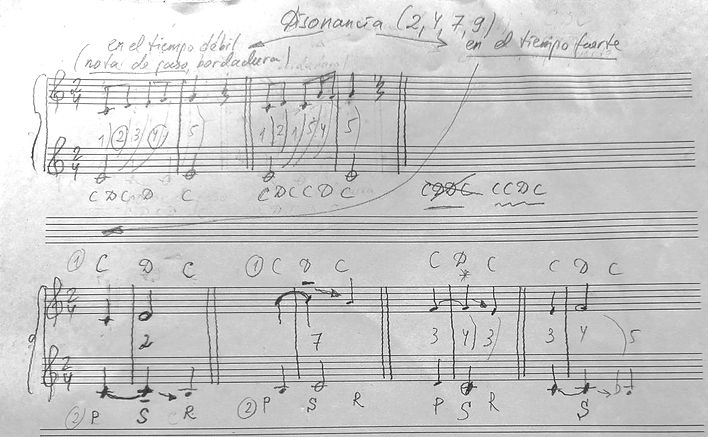 Disonancia (2, 4, 7, 9)
en el tiempo débil
en el tiempo fuerte
(nota de paso, bordadura)
2 2
4 4
1 2 3 4 5 1 2 1 5 4 5
2 2
4 4
C D C D C C D C C D C C D D C C C D C
① C D C ① C D C C D C C D C
2
4
2 7 3 4 3 3 4 5
2
4
② P S R ② P S R P S R S